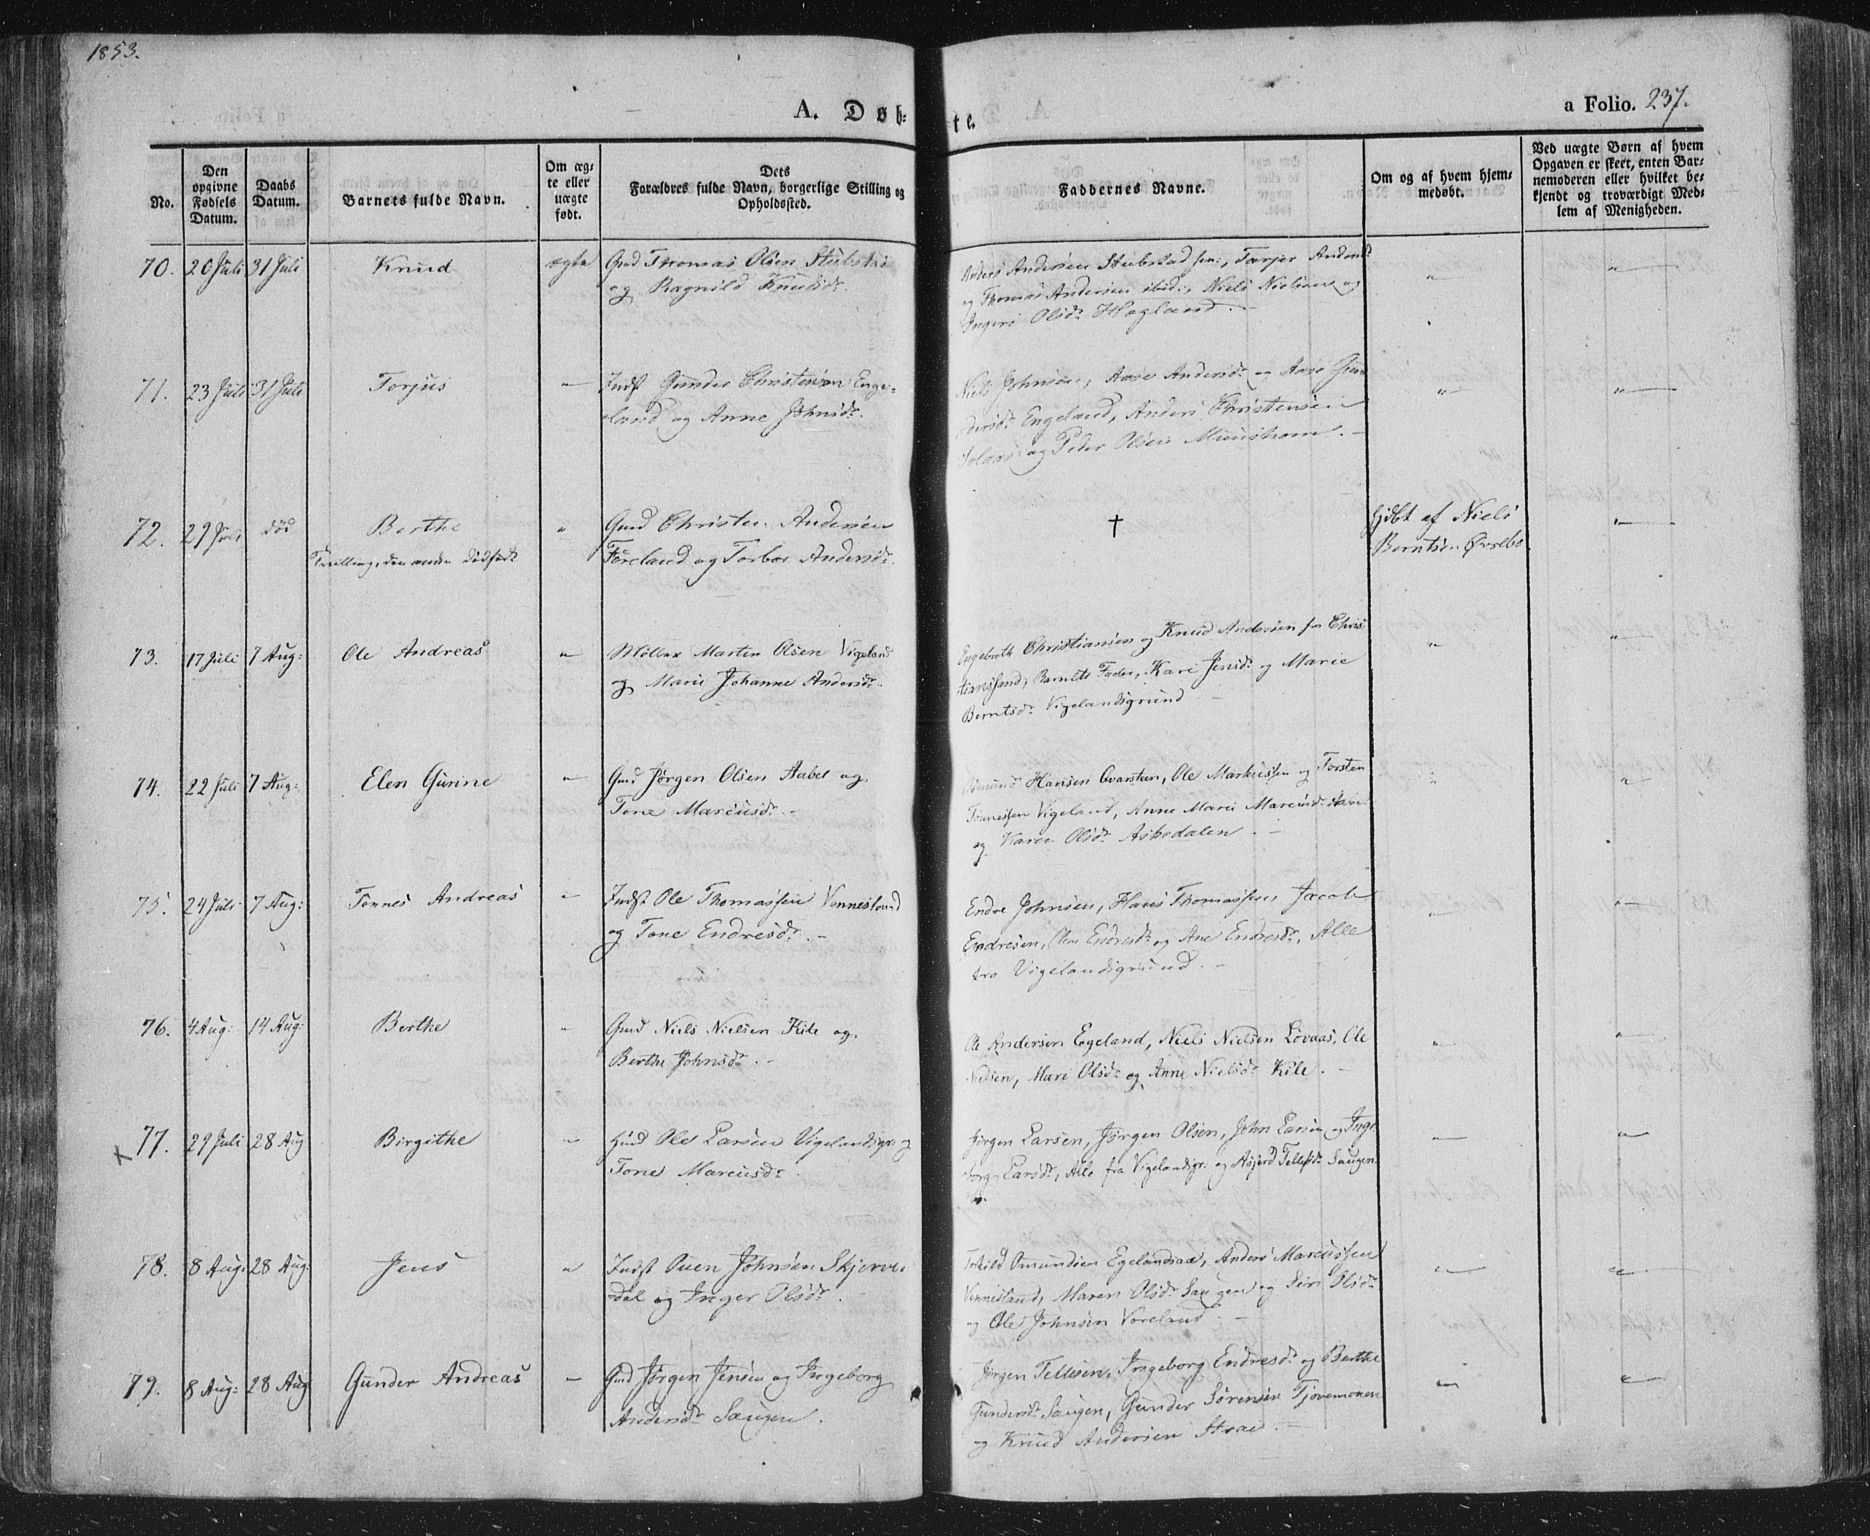 1853.
A. Døb-
te.
a Folio. 237.
No.
Den
opgivne
Fødsels
Datum.
Daabs
Datum.
Barnets fulde Navn.
Om æg-
te eller
uægte
født.
Dets
Forældres fulde Navn, borgerlige Stilling og
Opholdssted.
Faddernes Navne.
Om og af hvem hjem-
medøbt.
Ved uægte Børn af hvem
Opgaven er skeet, enten Bar-
nemoderen eller hvilket be-
kjendt og troværdigt Med-
lem af Menigheden.
70. 20 Juli 31 Juli Knud ægte Gmd Thomas Olsen Stubstad
og Ragnild Knudsdr.
Anders Andersen Stubstad sen:, Tarjer Andersdr
og Thomas Andersen ibid:, Niels Nielsen og
Ingers Olsdr Hagland. -
71. 23 Juli 31 Juli Torjus " Indst Gunder Christensen Enge-
land og Anne Johnsdr.
Niels Johnsen, Aase Andersdr og Aase Gun-
dersdr Engeland, Anders Christensen
og Peder Olsen
72. 29 Juli død Berthe " Gmd Christen Andersen
Tvilling, den anden dødfødt
Føreland og Torbor Andersdr.
†
hjdbt af Niels
Berntsen Øvrebø.
73. 17 Juli 7 Aug: Ole Andreas " Møller Martin Olsen Vigeland
og Marie Johanne Andersdr.
Engebreth Christiansen og Knud Andersen fra Chris-
tianssand, Barnets Fader, Kari Jensdr og Marie
Berntsdr Vigelandsgrund -
74. 22 Juli 7 Aug: Elen Gurine " Gmd Jørgen Olsen Aabel og
Tone Marcusdr. -
Osmund Hansen Qvarsten, Ole Markussen og Torsten
Tønnessen Vigeland, Anne Marie Marcusdr
og Karen Olsdr Askedalen. -
75. 24 Juli 7 Aug: Tønnes Andreas " Indst Ole Thomassen Vennesland
og Tone Endresdr. -
Endre Johnsen, Hans Thomassen, Jacob
Endresen, Endresdr og Ane Endresdr, Alle
fra Vigelandsgrund. -
76. 4 Aug: 14 Aug: Berthe " Gmd Niels Nielsen Kile og
Berthe Johnsdr. -
Ole Andersen Egeland, Niels Nielsen Lovaas, Ole
Nielsen, Mari Olsdr og Anne Nielsdr Kile. -
x 77. 29 Juli 28 Aug Birgithe " Ole Larsen Vigelandsgr. og
Tone Marcusdr.
Jørgen Larsen, Jørgen Olsen, John Larsen og Inge-
borg Larsdr, Alle fra Vigelandsgr. og Asjerd Tellefsdr Saugen
78. 8 Aug: 28 Aug: Jens " Indst Ouen Johnsen Skjerve-
dal og Inger Olsdr.
Torkild Omundsen Egelandsaa, Anders Marcussen
Vennesland, Maren Olsdr Saugen og Siri Olsdr
og Ole Johnsen Voreland -
79. 8 Aug: 28 Aug Gunder Andreas " Gmd Jørgen Jensen og Ingeborg
Andersdr Saugen.
Jørgen Tellefsen, Ingeborg Endresdr og Berthe
Gundersdr Saugen, Gunder Sørensen Tjovemoen
og Knud Andersen Straae -